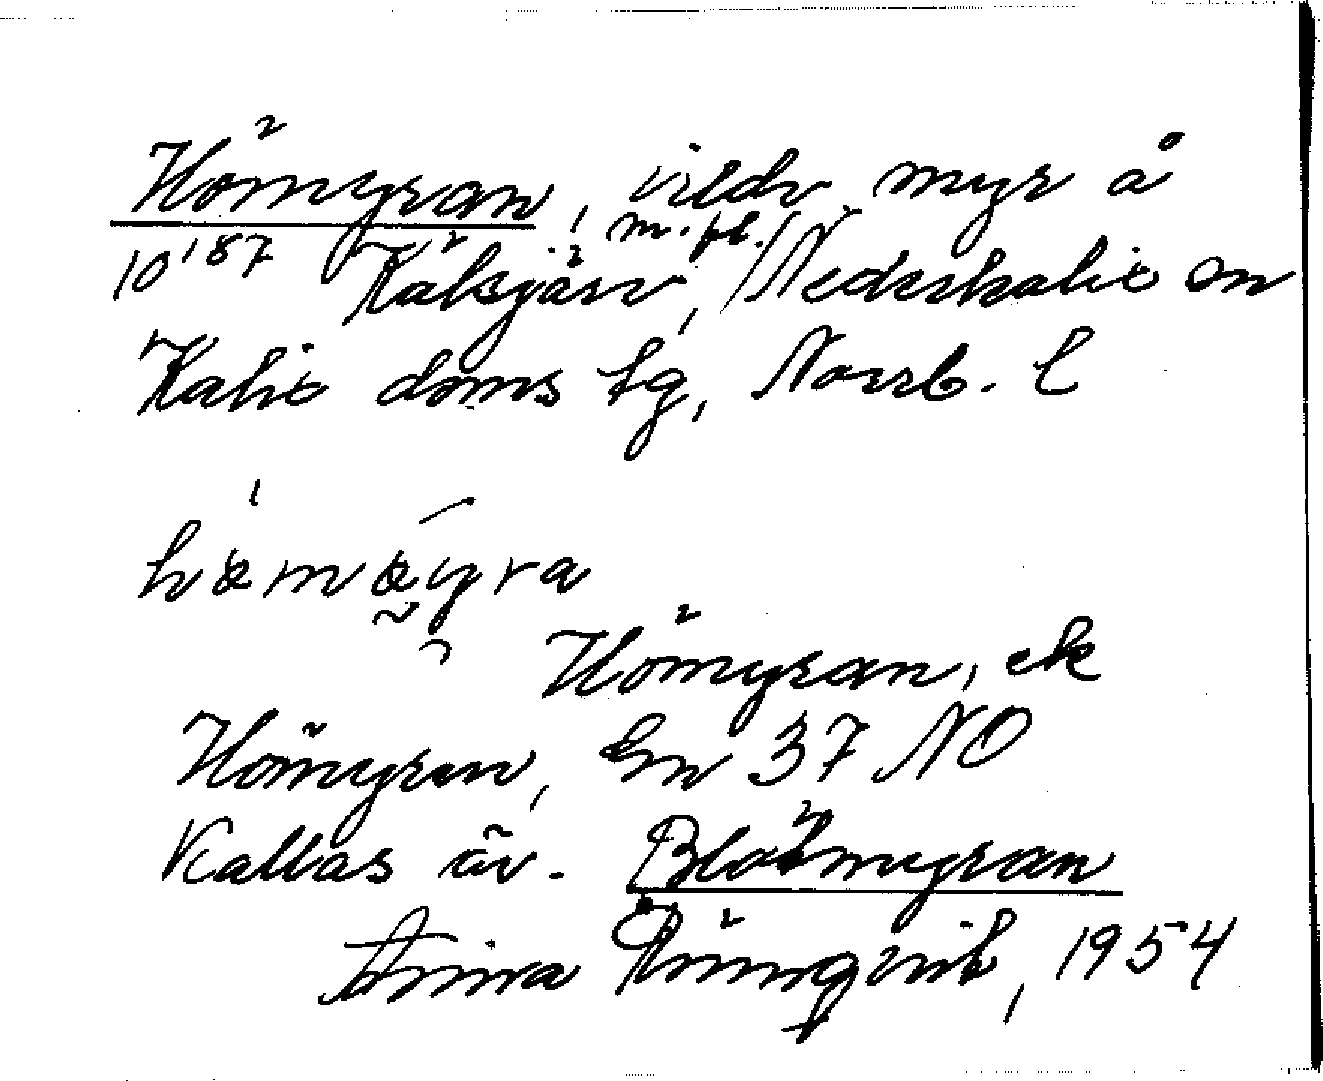 Hömyran, vildv. myr å
10 187 Kälsjärv m. fl., Nederkalix sn
Kalix doms tg, Norrb. l
hömöyra
Hömyran, ek
Hömyren, En 37 NO
Kallas äv. Blötmyran
1954